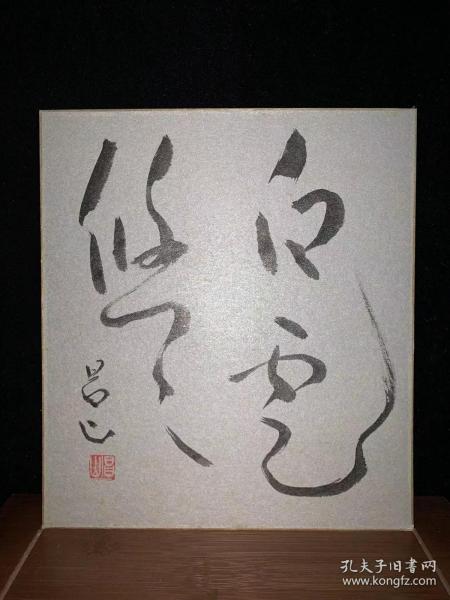 白雲
悠々
呂山
呂山
孔夫子旧书网
www.kongfz.com